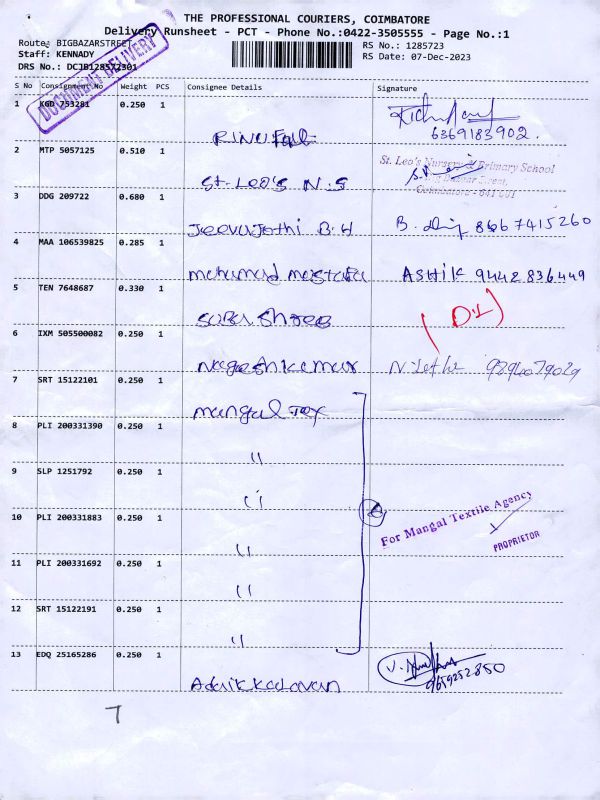 THE PROFESSIONAL COURIERS, COIMBATORE
Delivery Runsheet - PCT - Phone No.:0422-3505555 - Page No.:1
Route: BIGBAZARSTREET
RS No.: 1285723
Staff: KENNADY
RS Date: 07-Dec-2023
DRS No.: DCJB128572301
DOCUMENT DELIVERY
S No Consignment No Weight PCS Consignee Details Signature
1 KGD 753281 0.250 1
6369183902.
2 MTP 5057125 0.510 1
St. Leo's Nursery & Primary School
St. Leo's N.S
Coimbatore - 641 001
3 DDG 209722 0.680 1
Jeevajothi B.H B. 8667415260
4 MAA 106539825 0.285 1
mohamud mustafa ASHIK 9442836449
5 TEN 7648687 0.330 1
Sabari Shree
6 IXM 505500082 0.250 1
Nageshkumar
7 SRT 15122101 0.250 1
mangal Tex
8 PLI 200331390 0.250 1
"
9 SLP 1251792 0.250 1
"
10 PLI 200331883 0.250 1
For Mangal Textile Agency
PROPRIETOR
"
11 PLI 200331692 0.250 1
"
12 SRT 15122191 0.250 1
"
13 EDQ 25165286 0.250 1
Adaikkalavan 9659252850
7